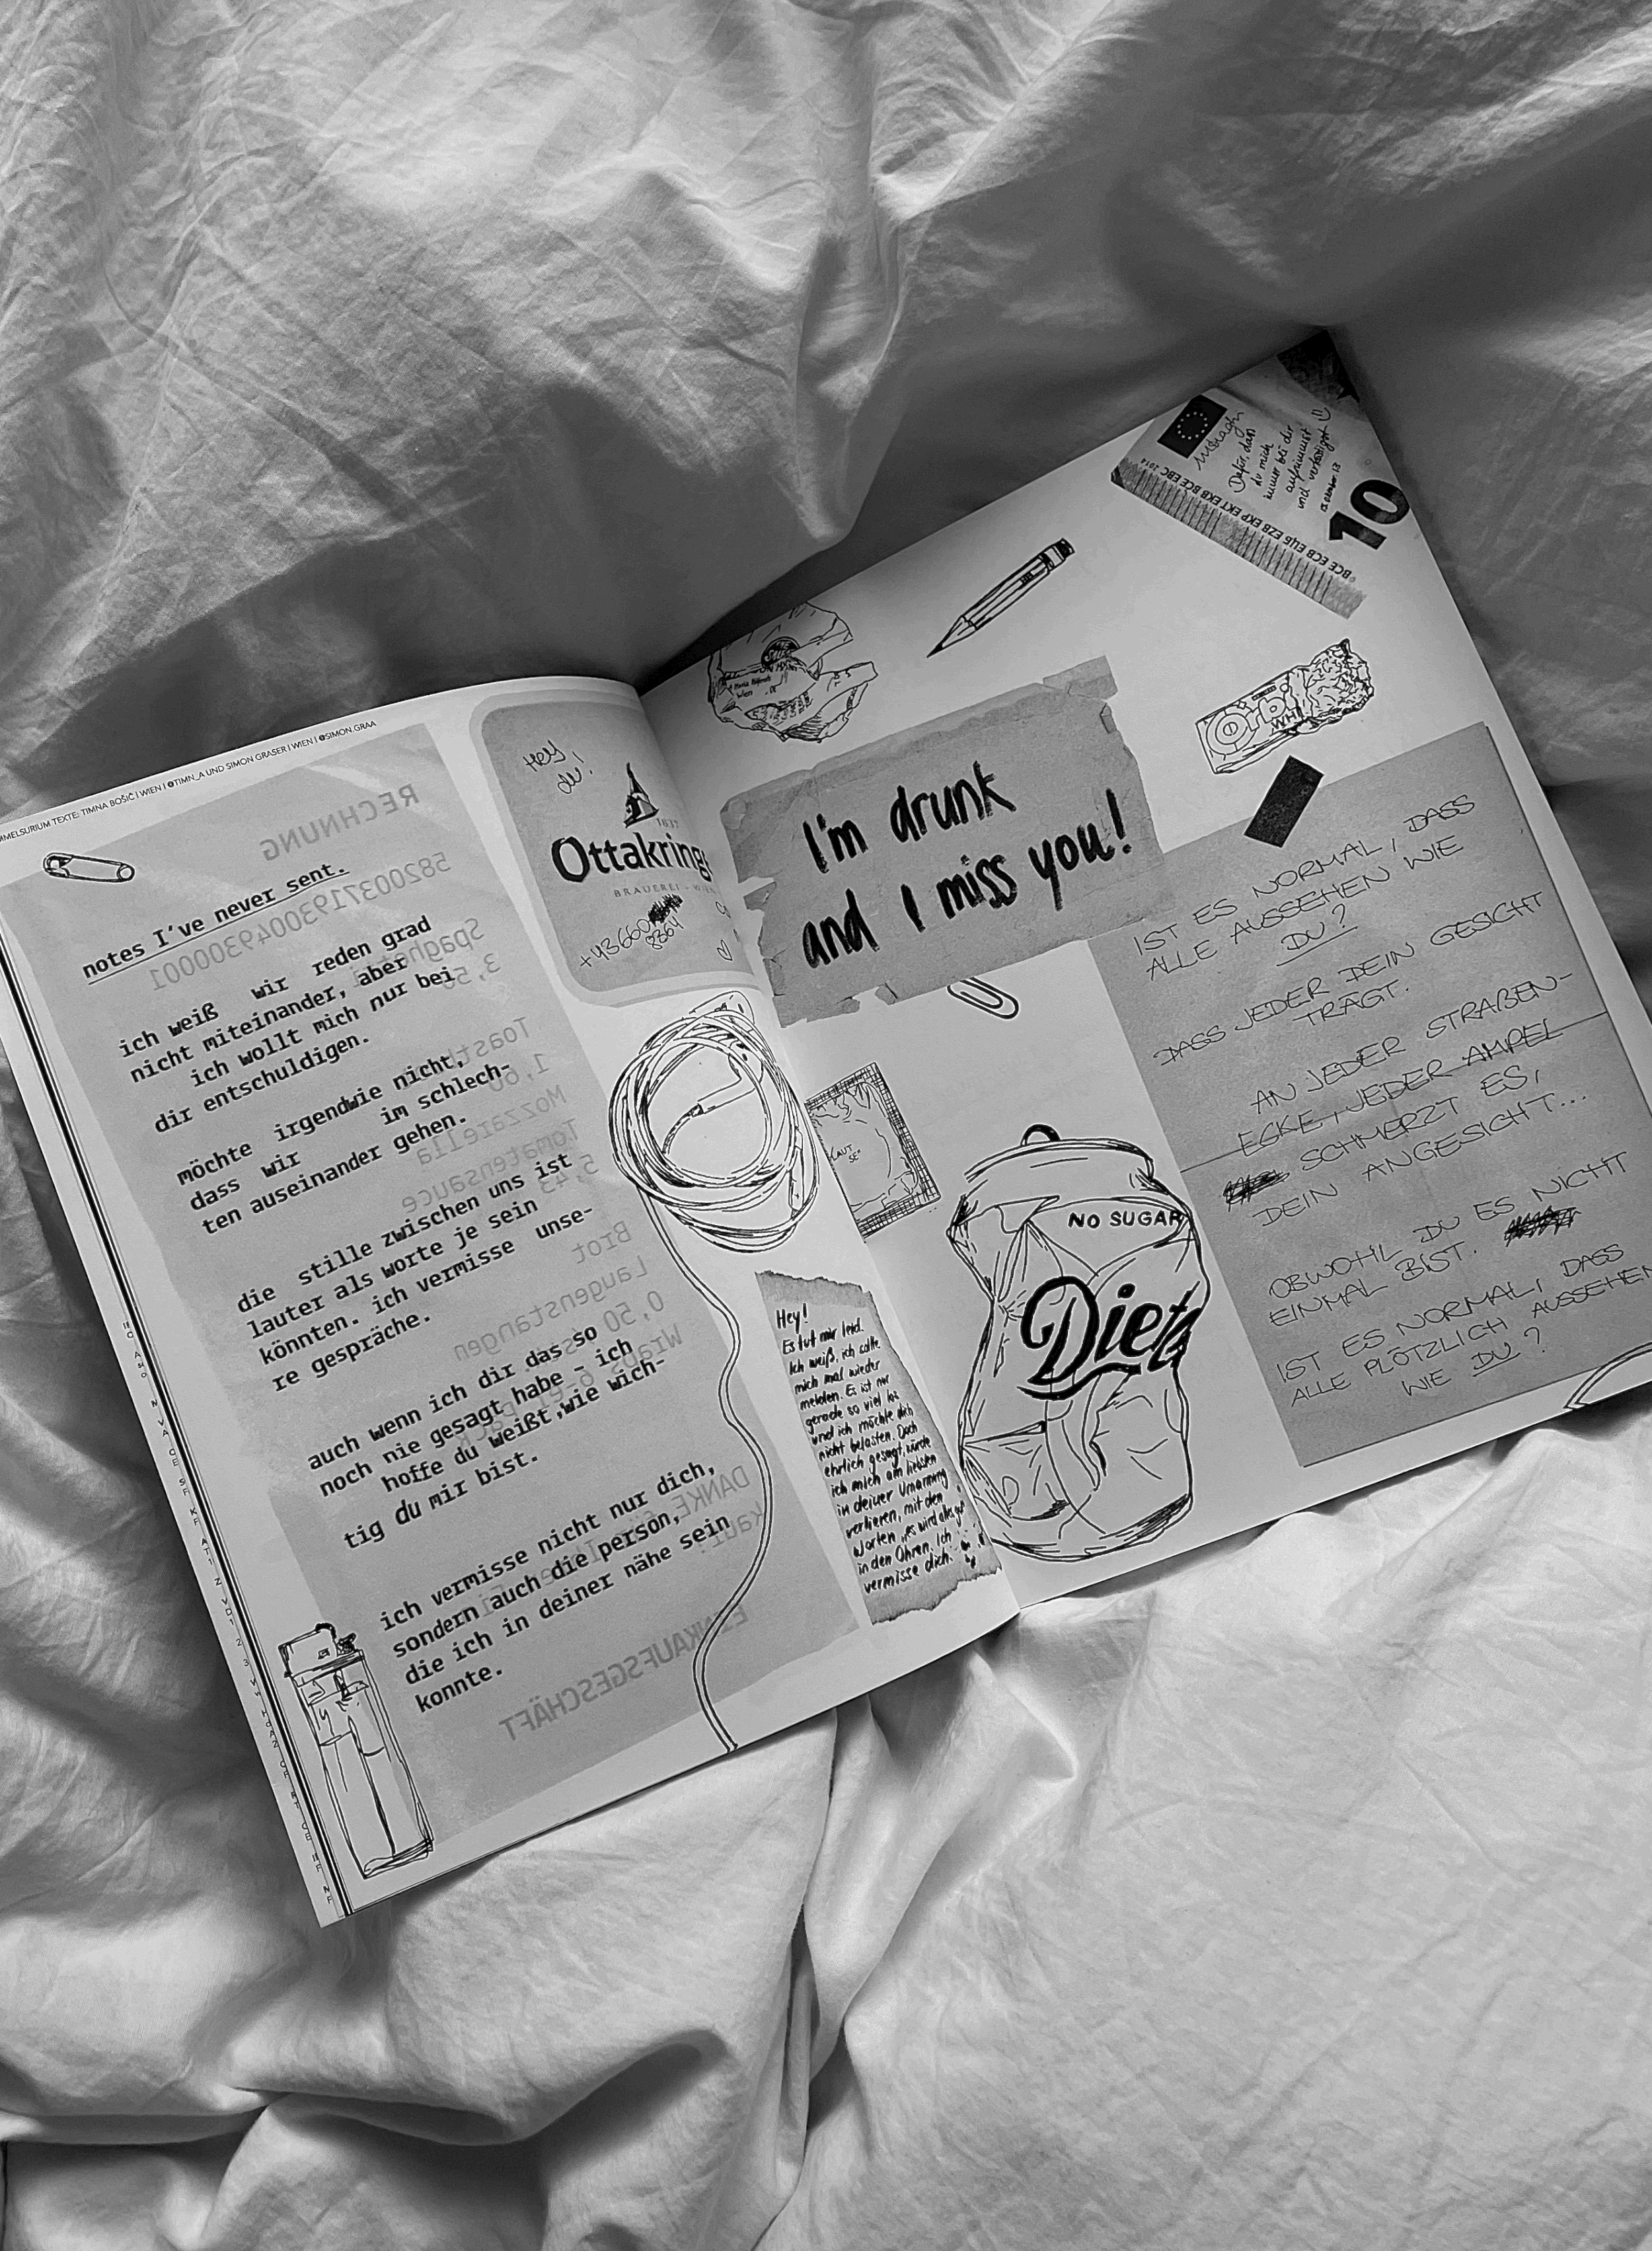 MMELSURIUM TEXTE: TIMNA BOŠIĆ I WIEN I @TIMN_A UND SIMON GRASER I WIEN I @SIMON.GRAA
RECHNUNG
5820037193004930001
notes I've never sent.
ich weiß wir reden grad
nicht miteinander, aber
ich wollt mich nur bei
dir entschuldigen.
möchte irgendwie nicht,
dass wir im schlech-
ten auseinander gehen.
die stille zwischen uns ist
lauter als worte je sein
könnten. ich vermisse unse-
re gespräche.
auch wenn ich dir das so
noch nie gesagt habe - ich
hoffe du weißt, wie wich-
tig du mir bist.
ich vermisse nicht nur dich,
sondern auch die person,
die ich in deiner nähe sein
konnte.
Spaghetti
3,50
1,60
Mozzarella
Tomatensauce
5,43
Brot
Laugenstangen
0,50
Wraps
DANKE
EINKAUFSGESCHÄFT
Hey
du!
1837
Ottakringe
BRAUEREI - WIEN
+43660
8364
I'm drunk
and I miss you!
Hey!
Es tut mir leid.
Ich weiß, ich sollte
mich mal wieder
melden. Es ist nur
gerade so viel los
und ich möchte dich
nicht belasten. Doch
ehrlich gesagt, würde
ich mich am liebsten
in deiner Umarmung
verlieren, mit den
Worten „es wird alles gut"
in den Ohren. Ich
vermisse dich.
NO SUGAR
Diet
Orbi
WHI
Dafür, dass
du mich
immer bei dir
aufnimmst
und verköstigst
BCE ECB ЕЦБ EZB EKP EKT EKB BCE EBC 2014
10
IST ES NORMAL, DASS
ALLE AUSSEHEN WIE
DU?
DASS JEDER DEIN GESICHT
TRÄGT.
AN JEDER STRAßEN-
ECKE, JEDER AMPEL
SCHMERZT ES,
DEIN ANGESICHT...
OBWOHL DU ES NICHT
EINMAL BIST.
IST ES NORMAL, DASS
ALLE PLÖTZLICH AUSSEHEN
WIE DU?